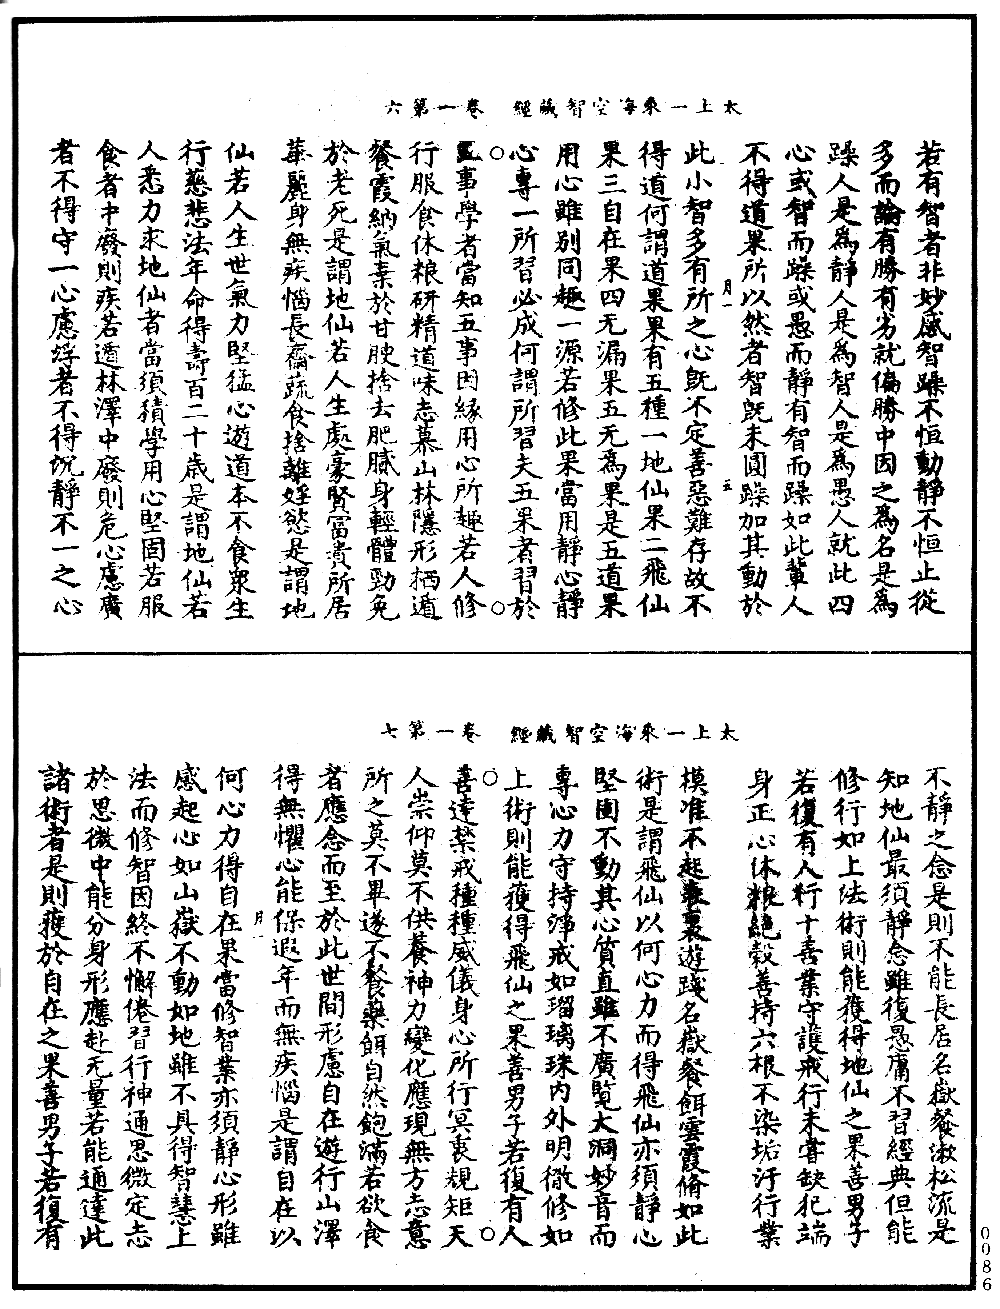 太上一乘海空智藏經　卷一第六
若有智者非妙感智躁不恒動靜不恒止從
多而論有勝有劣就偏勝中因之為名是為
躁人是為靜人是為智人是為愚人就此四
心或智而躁或愚而靜有智而躁如此輩人
不得道果所以然者智既未圓躁加其動於
月一
五
此小智多有所之心既不定善惡難存故不
得道何謂道果果有五種一地仙果二飛仙
果三自在果四无漏果五无為果是五道果
用心雖別同趣一源若修此果當用靜心靜
心專一所習必成何謂所習夫五果者習於
五事學者當知五事因緣用心所趣若人修
行服食休粮研精道味志慕山林隱形栖遁
餐霞納氣棄於甘腴捨去肥膩身輕體勁免
於老死是謂地仙若人生處豪賢富貴所居
華麗身無疾惱長齋蔬食捨離婬慾是謂地
仙若人生世氣力堅猛心遊道本不食衆生
行慈悲法年命得壽百二十歲是謂地仙若
人悉力求地仙者當須積學用心堅固若服
食者中廢則疾若遁林澤中廢則危心慮廣
者不得守一心慮婬者不得悅靜不一之心
太上一乘海空智藏經　卷一第七
不靜之念是則不能長居名嶽餐漱松流是
知地仙最須靜念雖復愚庸不習經典但能
修行如上法術則能獲得地仙之果善男子
若復有人行十善業守護戒行未甞缺犯端
身正心休粮絕穀善持六根不染垢汙行業
模准不起裏遊踐名嶽餐餌雲霞脩如此
術是謂飛仙以何心力而得飛仙亦須靜心
堅固不動其心質直雖不廣覽大洞妙音而
專心力守持淨戒如瑠璃珠内外明徹修如
上術則能獲得飛仙之果善男子若復有人
善達禁戒種種威儀身心所行冥衷規矩天
人崇仰莫不供養神力變化應現無方志意
所之莫不畢遂不餐藥餌自然飽滿若欲食
者應念而至於此世間形慮自在遊行山澤
得無懼心能保遐年而無疾惱是謂自在以
月一
何心力得自在果當修智業亦須靜心形雖
感起心如山嶽不動如地雖不具得智慧上
法而修智因終不懈倦習行神通思微定志
於思微中能分身形應赴无量若能通達此
諸術者是則獲於自在之果善男子若復有
0086